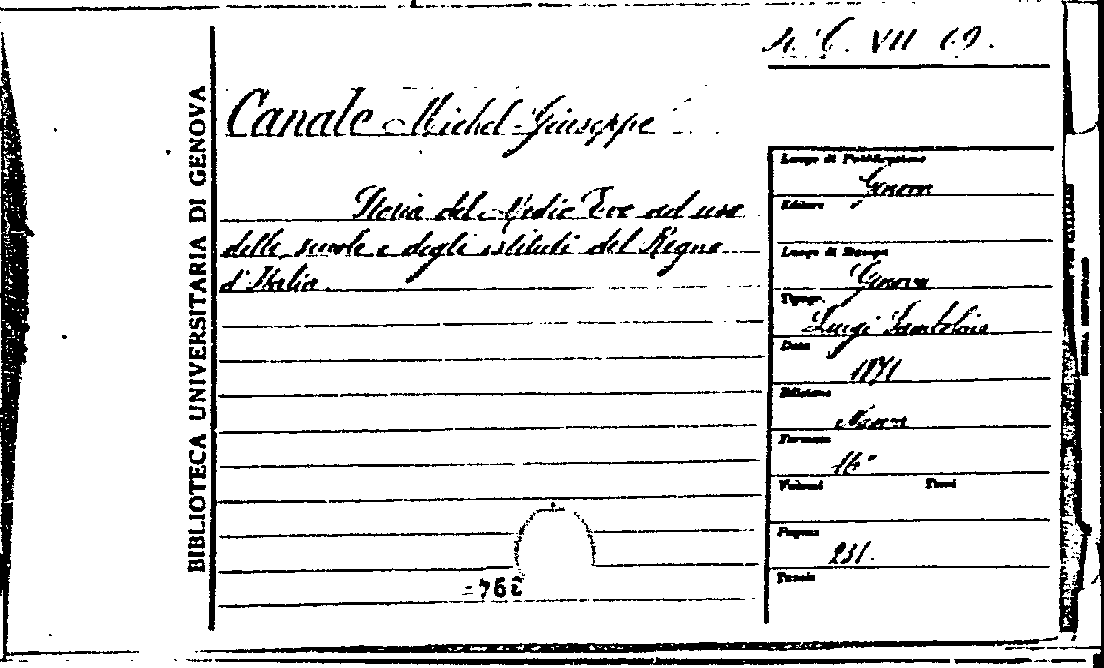 4. C. VII 69.
BIBLIOTECA UNIVERSITARIA DI GENOVA
Canale Michel-Giuseppe
Storia del Medio Evo ad uso
delle scuole e degli istituti del Regno
d'Italia.
Luogo di Pubblicazione
Genova
Editore
Luogo di Stampa
Genova
Tipogr.
Luigi Sambolino
Data
1871
Edizione
Nuova
Formato
16°
Volumi Tomi
Pagine
231.
Tavole